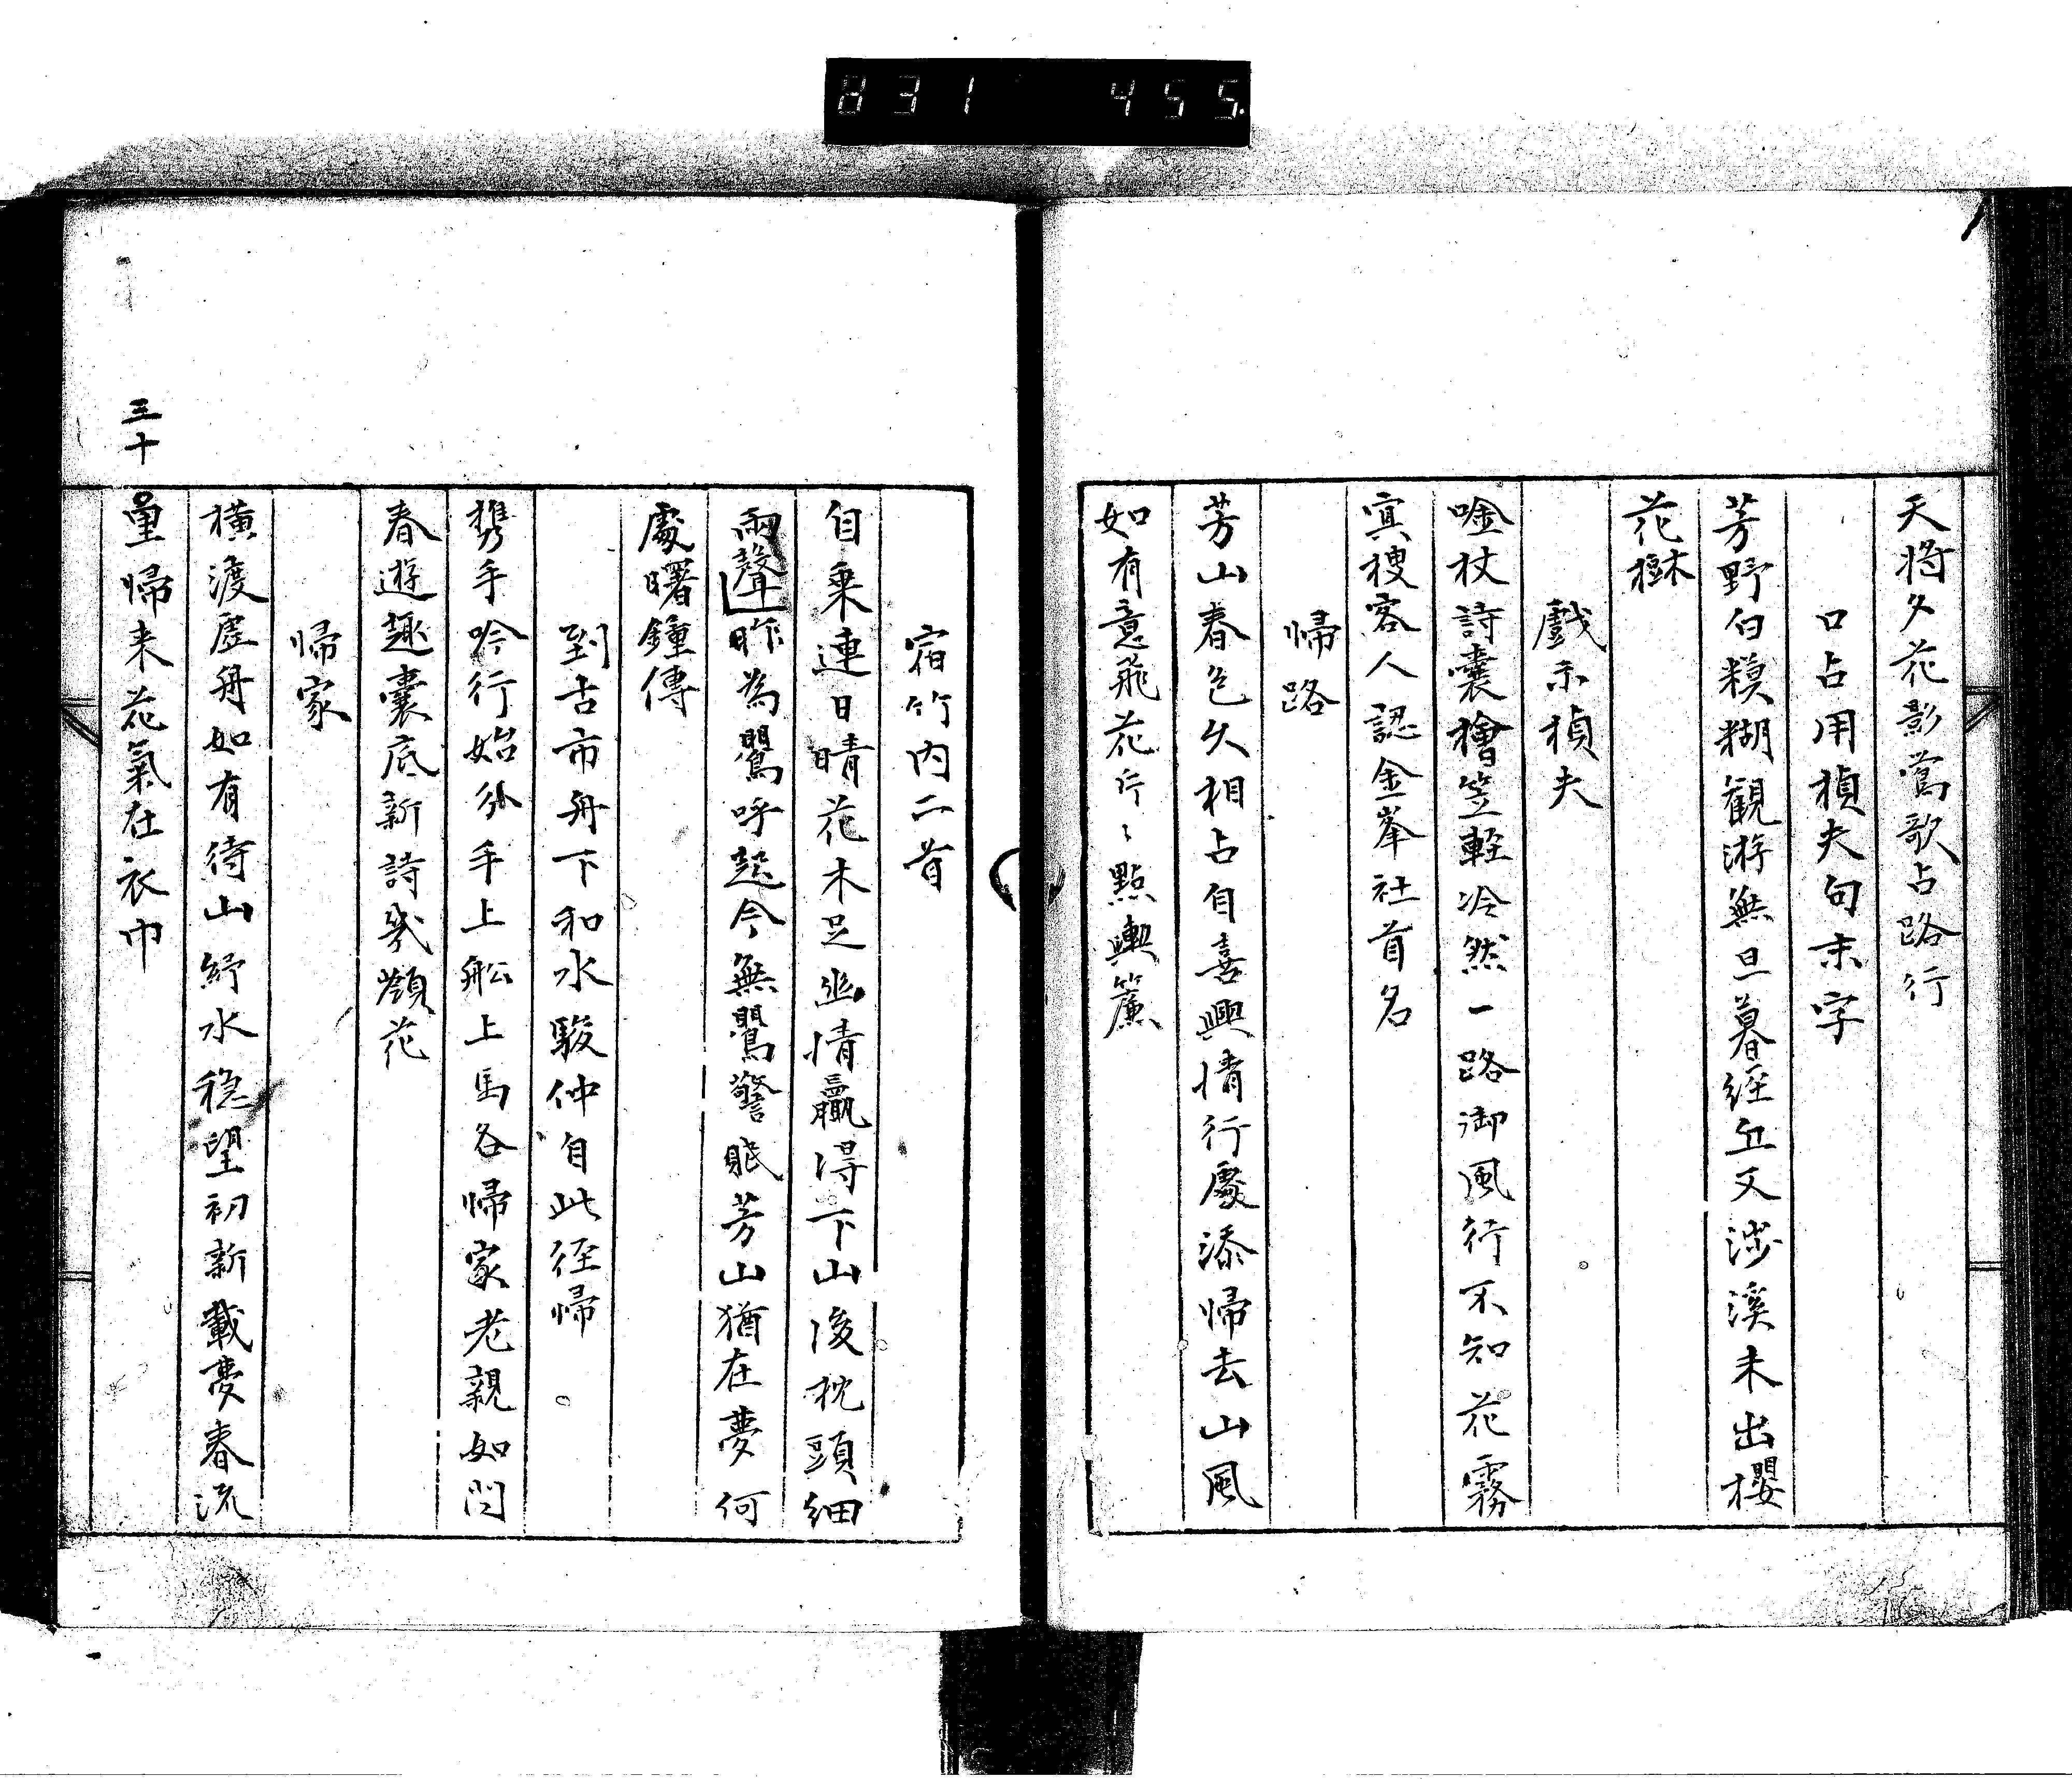 831 455.
天將夕花影鶯歌占路行
口占用楨夫句末字
芳野白糢糊観游無旦暮經丘又渉溪未出櫻
花樹
戲示楨夫
唫杖詩囊檜笠輕冷然一路御風行不知花霧
寘稉客人認金峯社首名
帰路
芳山春色久相占自喜興情行處添帰去山風
如有意飛花片〻點輿簾
宿竹内二首
自乗連日晴花未足幽情贏得下山後枕頭細
雨聲昨為鸎呼起今無鸎警眠芳山猶在夢何
處曙鐘傳
到古市舟下和水駿仲自此徑帰
携手吟行始分手上舩上馬各帰家老親如問
春遊趣囊底新詩幾顆花
帰家
横渡虚舟如有待山紆水穏望初新載夢春流
量帰来花氣在衣巾
三十